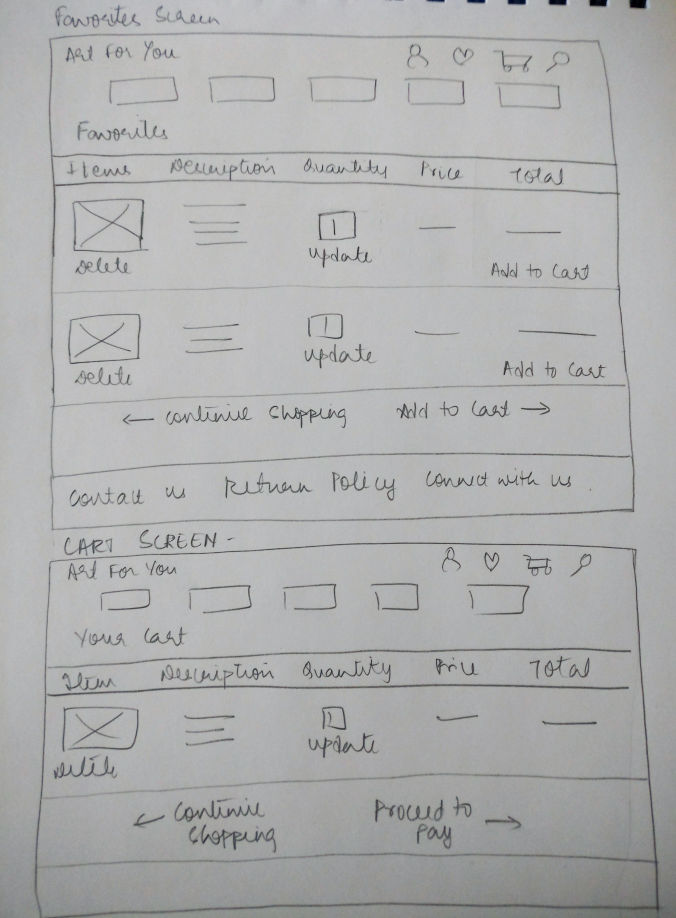 Favorites Screen
Art For You
Favorites
Items Description Quantity Price Total
1
Delete update Add to Cart
1
Delete update Add to Cart
← Continue Shopping Add to Cart →
Contact us Return Policy Connect with us .
CART SCREEN -
Art For You
Your Cart
Item Description Quantity Price Total
1
Delete update
← Continue Shopping
Proceed to Pay →